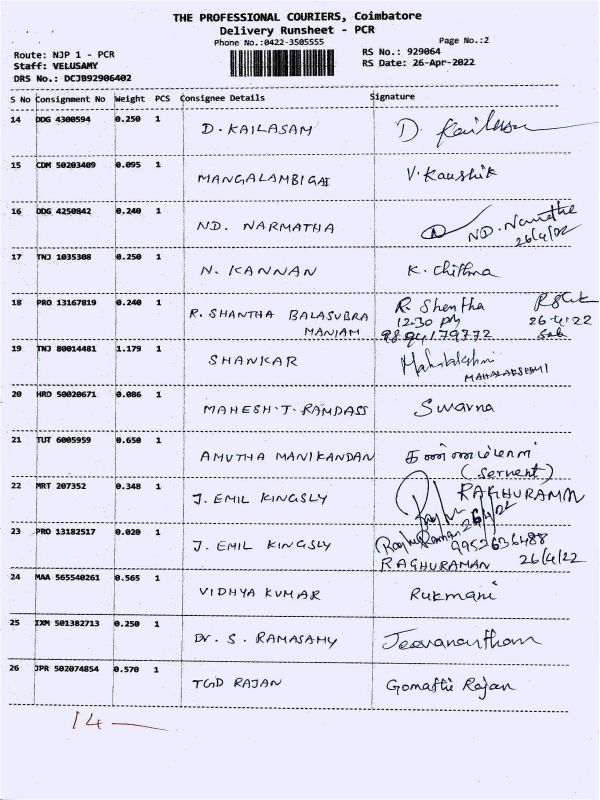 THE PROFESSIONAL COURIERS, Coimbatore
Delivery Runsheet - PCR
Phone No.:0422-3505555
Page No.:2
Route: NJP 1 - PCR
RS No.: 929064
Staff: VELUSAMY
RS Date: 26-Apr-2022
DRS No.: DCJB92906402
S No Consignment No Weight PCS Consignee Details Signature
14 DDG 4300594 0.250 1 D. KAILASAM D. Kailasam
15 CDM 50203409 0.095 1 MANGALAMBIGAI V. Kaushik
16 DDG 4250842 0.240 1 ND. NARMATHA ND. Narmatha
26/4/22
17 TNJ 1035308 0.250 1 N. KANNAN K. Chithra
18 PRO 13167819 0.240 1 R. SHANTHA BALASUBRA R. Shantha
MANIAM 12-30 pm 26-4-22
9894179772
19 TNJ 80014481 1.179 1 SHANKAR Mahalakshmi
MAHALAKSHMI
20 HRD 50020671 0.086 1 MAHESH.T.RAMDASS Swarna
21 TUT 6005959 0.650 1 AMUTHA MANIKANDAN
(Servent)
22 MRT 207352 0.348 1 J. EMIL KINGSLY RAGHURAMAN
26/4/22
23 PRO 13182517 0.020 1 J. EMIL KINGSLY Raghuraman 9952636488
RAGHURAMAN 26/4/22
24 MAA 565540261 0.565 1 VIDHYA KUMAR Rukmani
25 IXM 501382713 0.250 1 Dr. S. RAMASAMY Jeevanantham
26 JPR 502074854 0.570 1 TGD RAJAN Gomathi Rajan
14